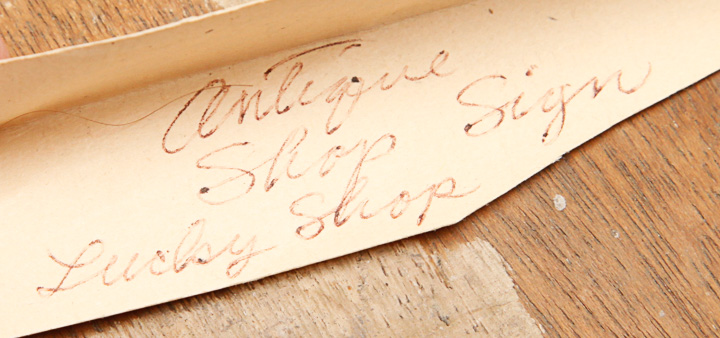 Antique
Shop Sign
Lucky Shop